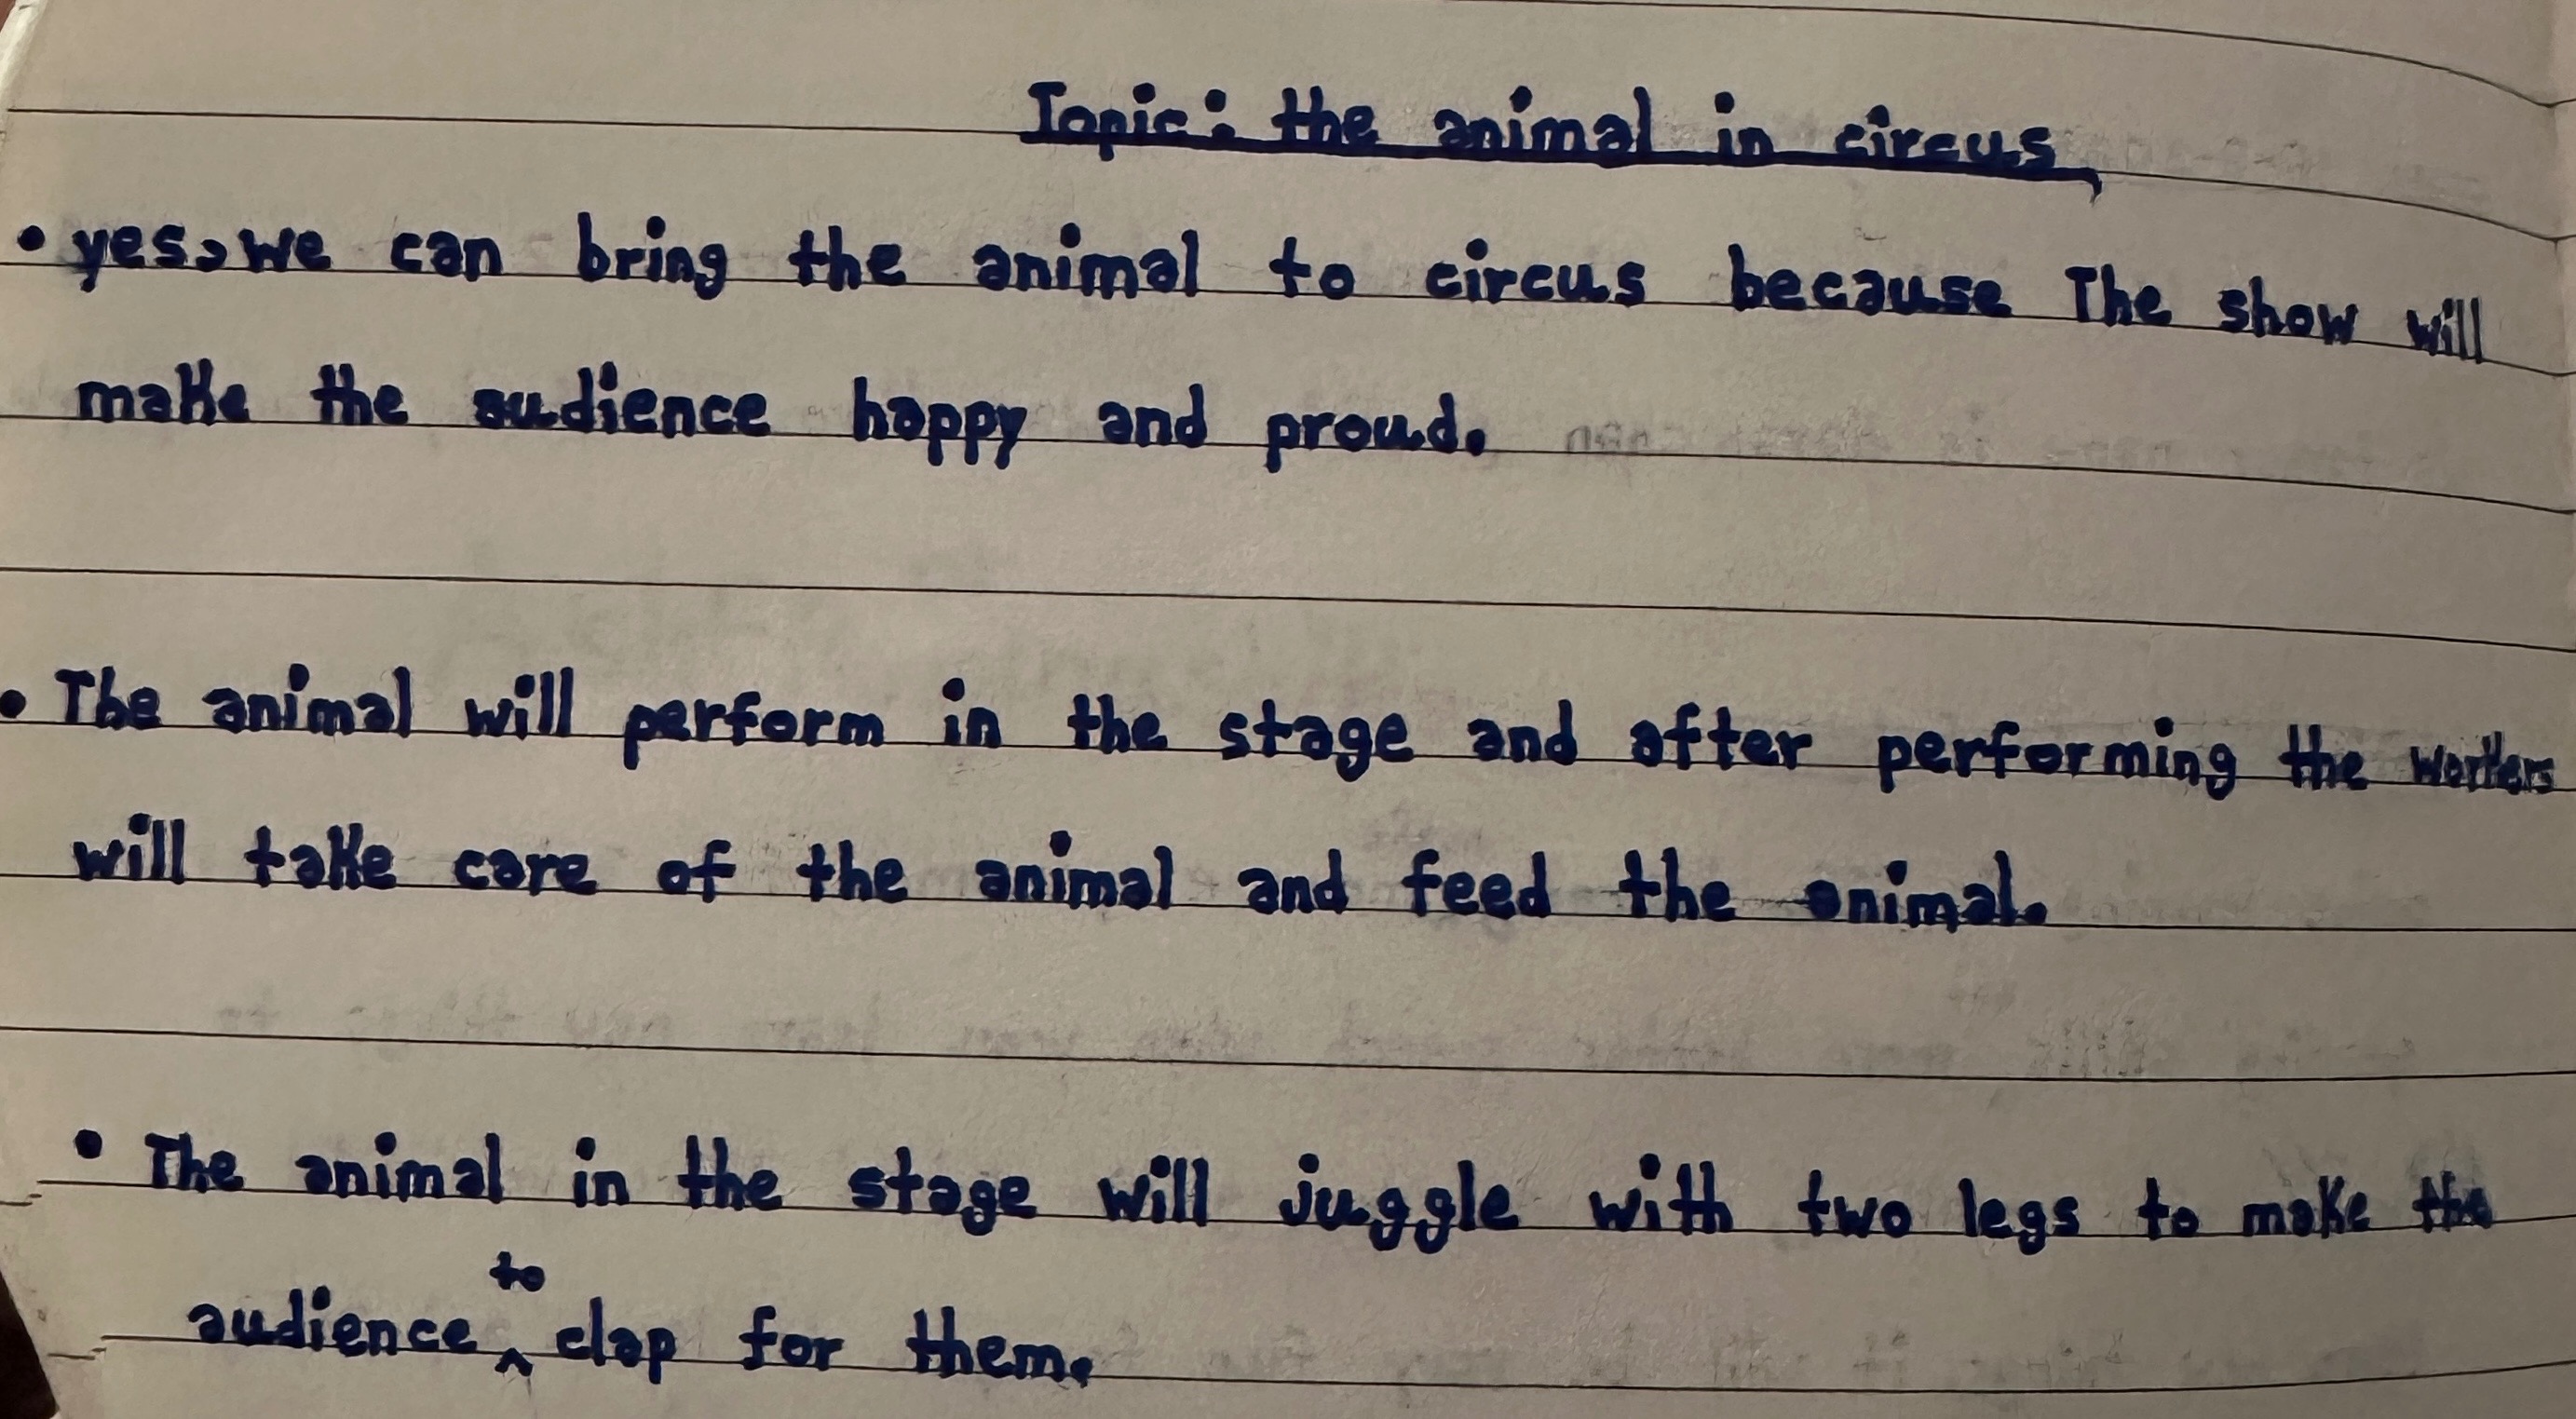 Topic: the animal in circus
• yes, we can bring the animal to circus because The show will
make the audience happy and proud.
• The animal will perform in the stage and after performing the workers
will take care of the animal and feed the animal.
• The animal in the stage will juggle with two legs to make the
audience to clap for them.